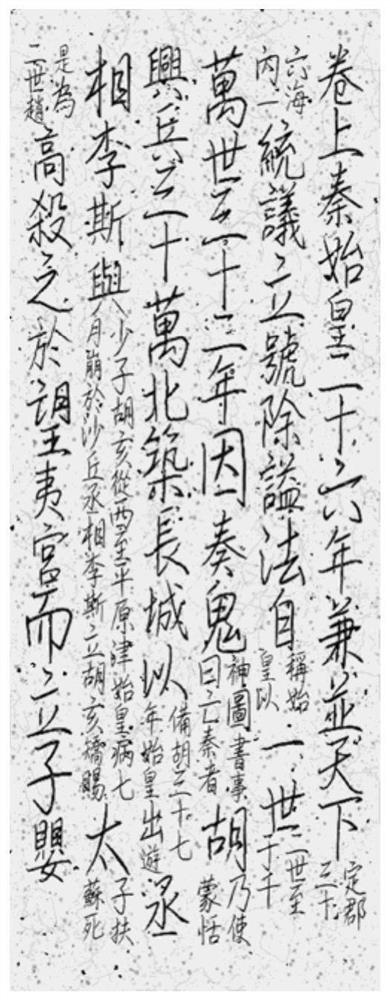 卷上秦始皇二十六年兼並天下定郡三十
六海內一統議立號除謚法自稱始皇以一世二世至于千
萬世三十二年因奏鬼神圖書事曰亡秦者胡乃使蒙恬
興兵三十萬北築長城以備胡三十七年始皇出遊丞
相李斯與少子胡亥從西至平原津始皇病七月崩於沙丘丞相李斯立胡亥矯賜太子扶蘇死
是為二世趙高殺之於望夷宮而立子嬰